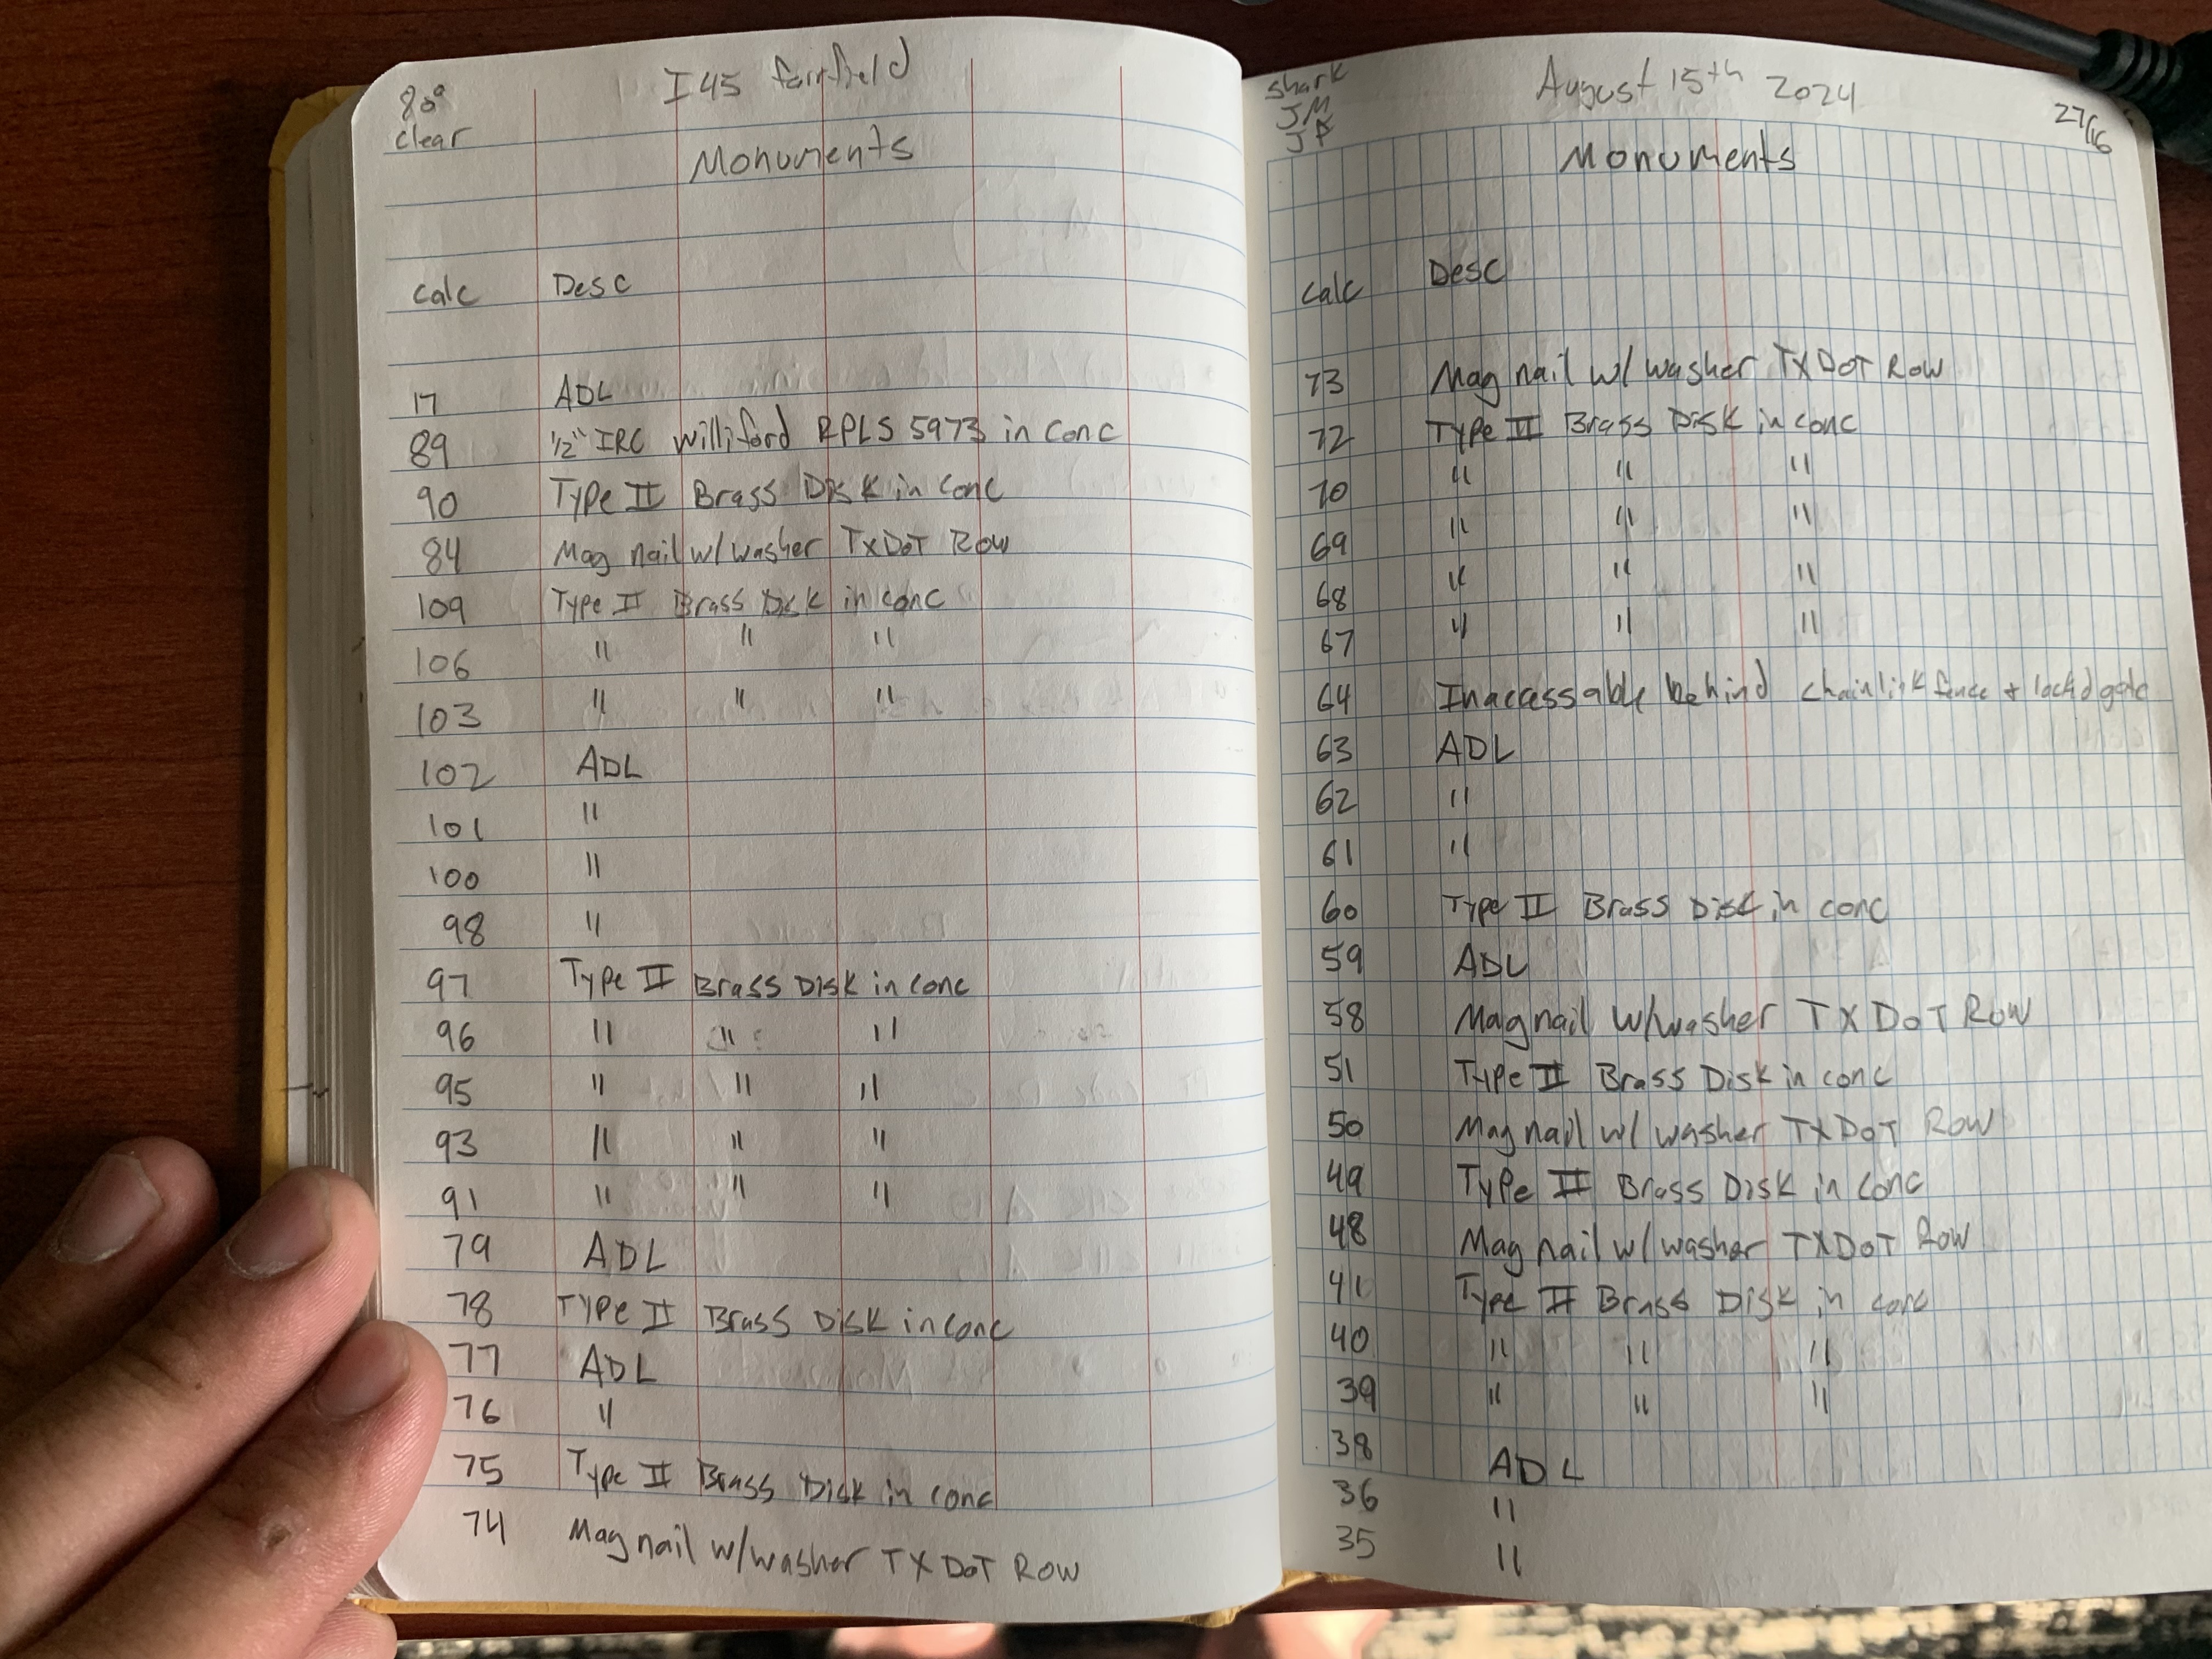 80°
clear
I45 fairfield
Monuments
Calc Desc
17 ADL
89 1/2" IRC Williford RPLS 5973 in conc
90 Type II Brass Disk in conc
84 Mag nail w/washer TxDOT Row
109 Type II Brass Disk in conc
106 " " "
103 " " "
102 ADL
101 "
100 "
98 "
97 Type II Brass Disk in conc
96 " " "
95 " " "
93 " " "
91 " " "
79 ADL
78 Type II Brass Disk in conc
77 ADL
76 "
75 Type II Brass Disk in conc
74 Mag nail w/washer TXDOT ROW
shark
JM
August 15th 2024
27/16
Monuments
Calc Desc
73 Mag nail w/ washer TXDOT Row
72 Type II Brass Disk in conc
70 " " "
69 " " "
68 " " "
67 " " "
64 Inacessable behind chainlink fence + lockd gate
63 ADL
62 "
61 "
60 Type II Brass Disk in conc
59 ADL
58 Mag nail w/washer TXDOT Row
51 Type II Brass Disk in conc
50 Mag nail w/ washer TXDOT Row
49 Type II Brass Disk in conc
48 Mag nail w/ washer TXDOT Row
41 Type II Brass Disk in conc
40 " " "
39 " " "
38 ADL
36 "
35 "